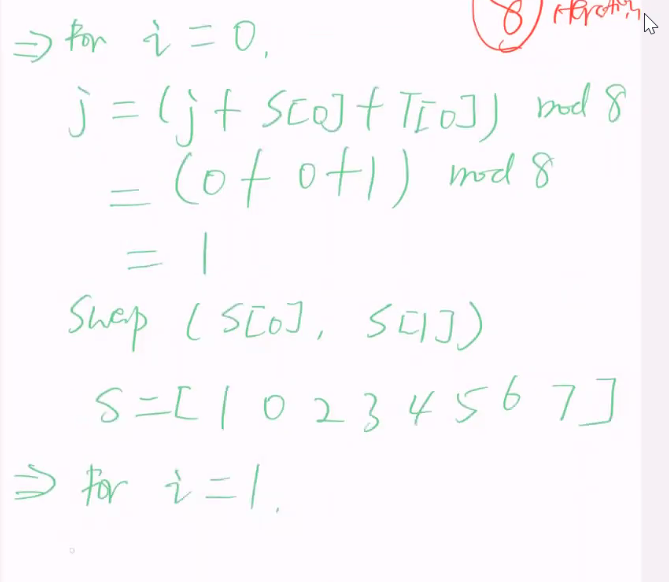 8 iterations
⇒ for i = 0,
j = (j + S[0] + T[0]) mod 8
= (0 + 0 + 1) mod 8
= 1
Swap (S[0], S[1])
S = [1 0 2 3 4 5 6 7]
⇒ for i = 1,